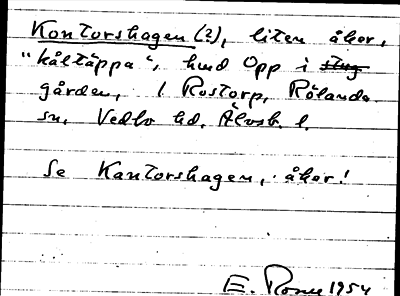 Kontorshagen (?), liten åker,
"kåltäppa", hud Opp i
gården, 1 Rostorp, Rölanda
sn, Vedbo hd, Älvsb. l.
Se Kantorshagen, åker!
E. 1954